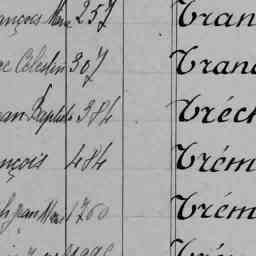 ançois Marie 257 Tran
e Célestin 307 Tran
ean Baptiste 384 Tréc
ançois 484 Trém
ph Jean Marie 1260 Trém